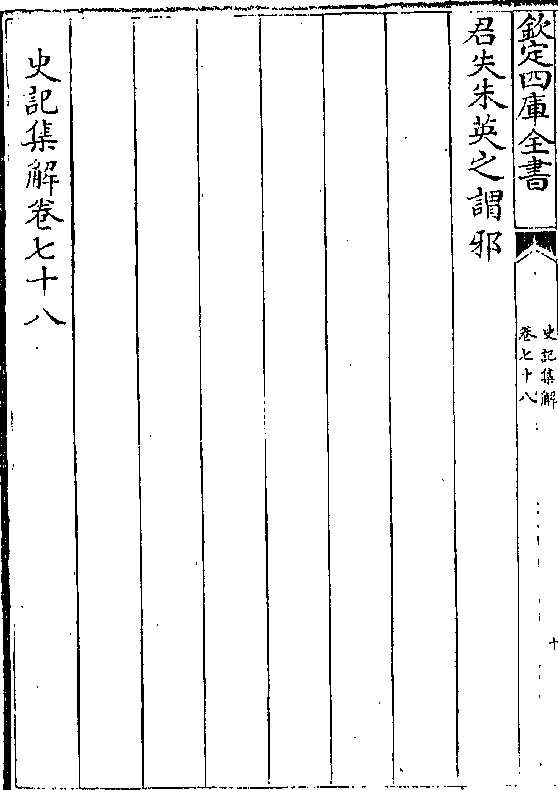 欽定四庫全書
史記集解
卷七十八
十
君失朱英之謂邪
史記集解卷七十八